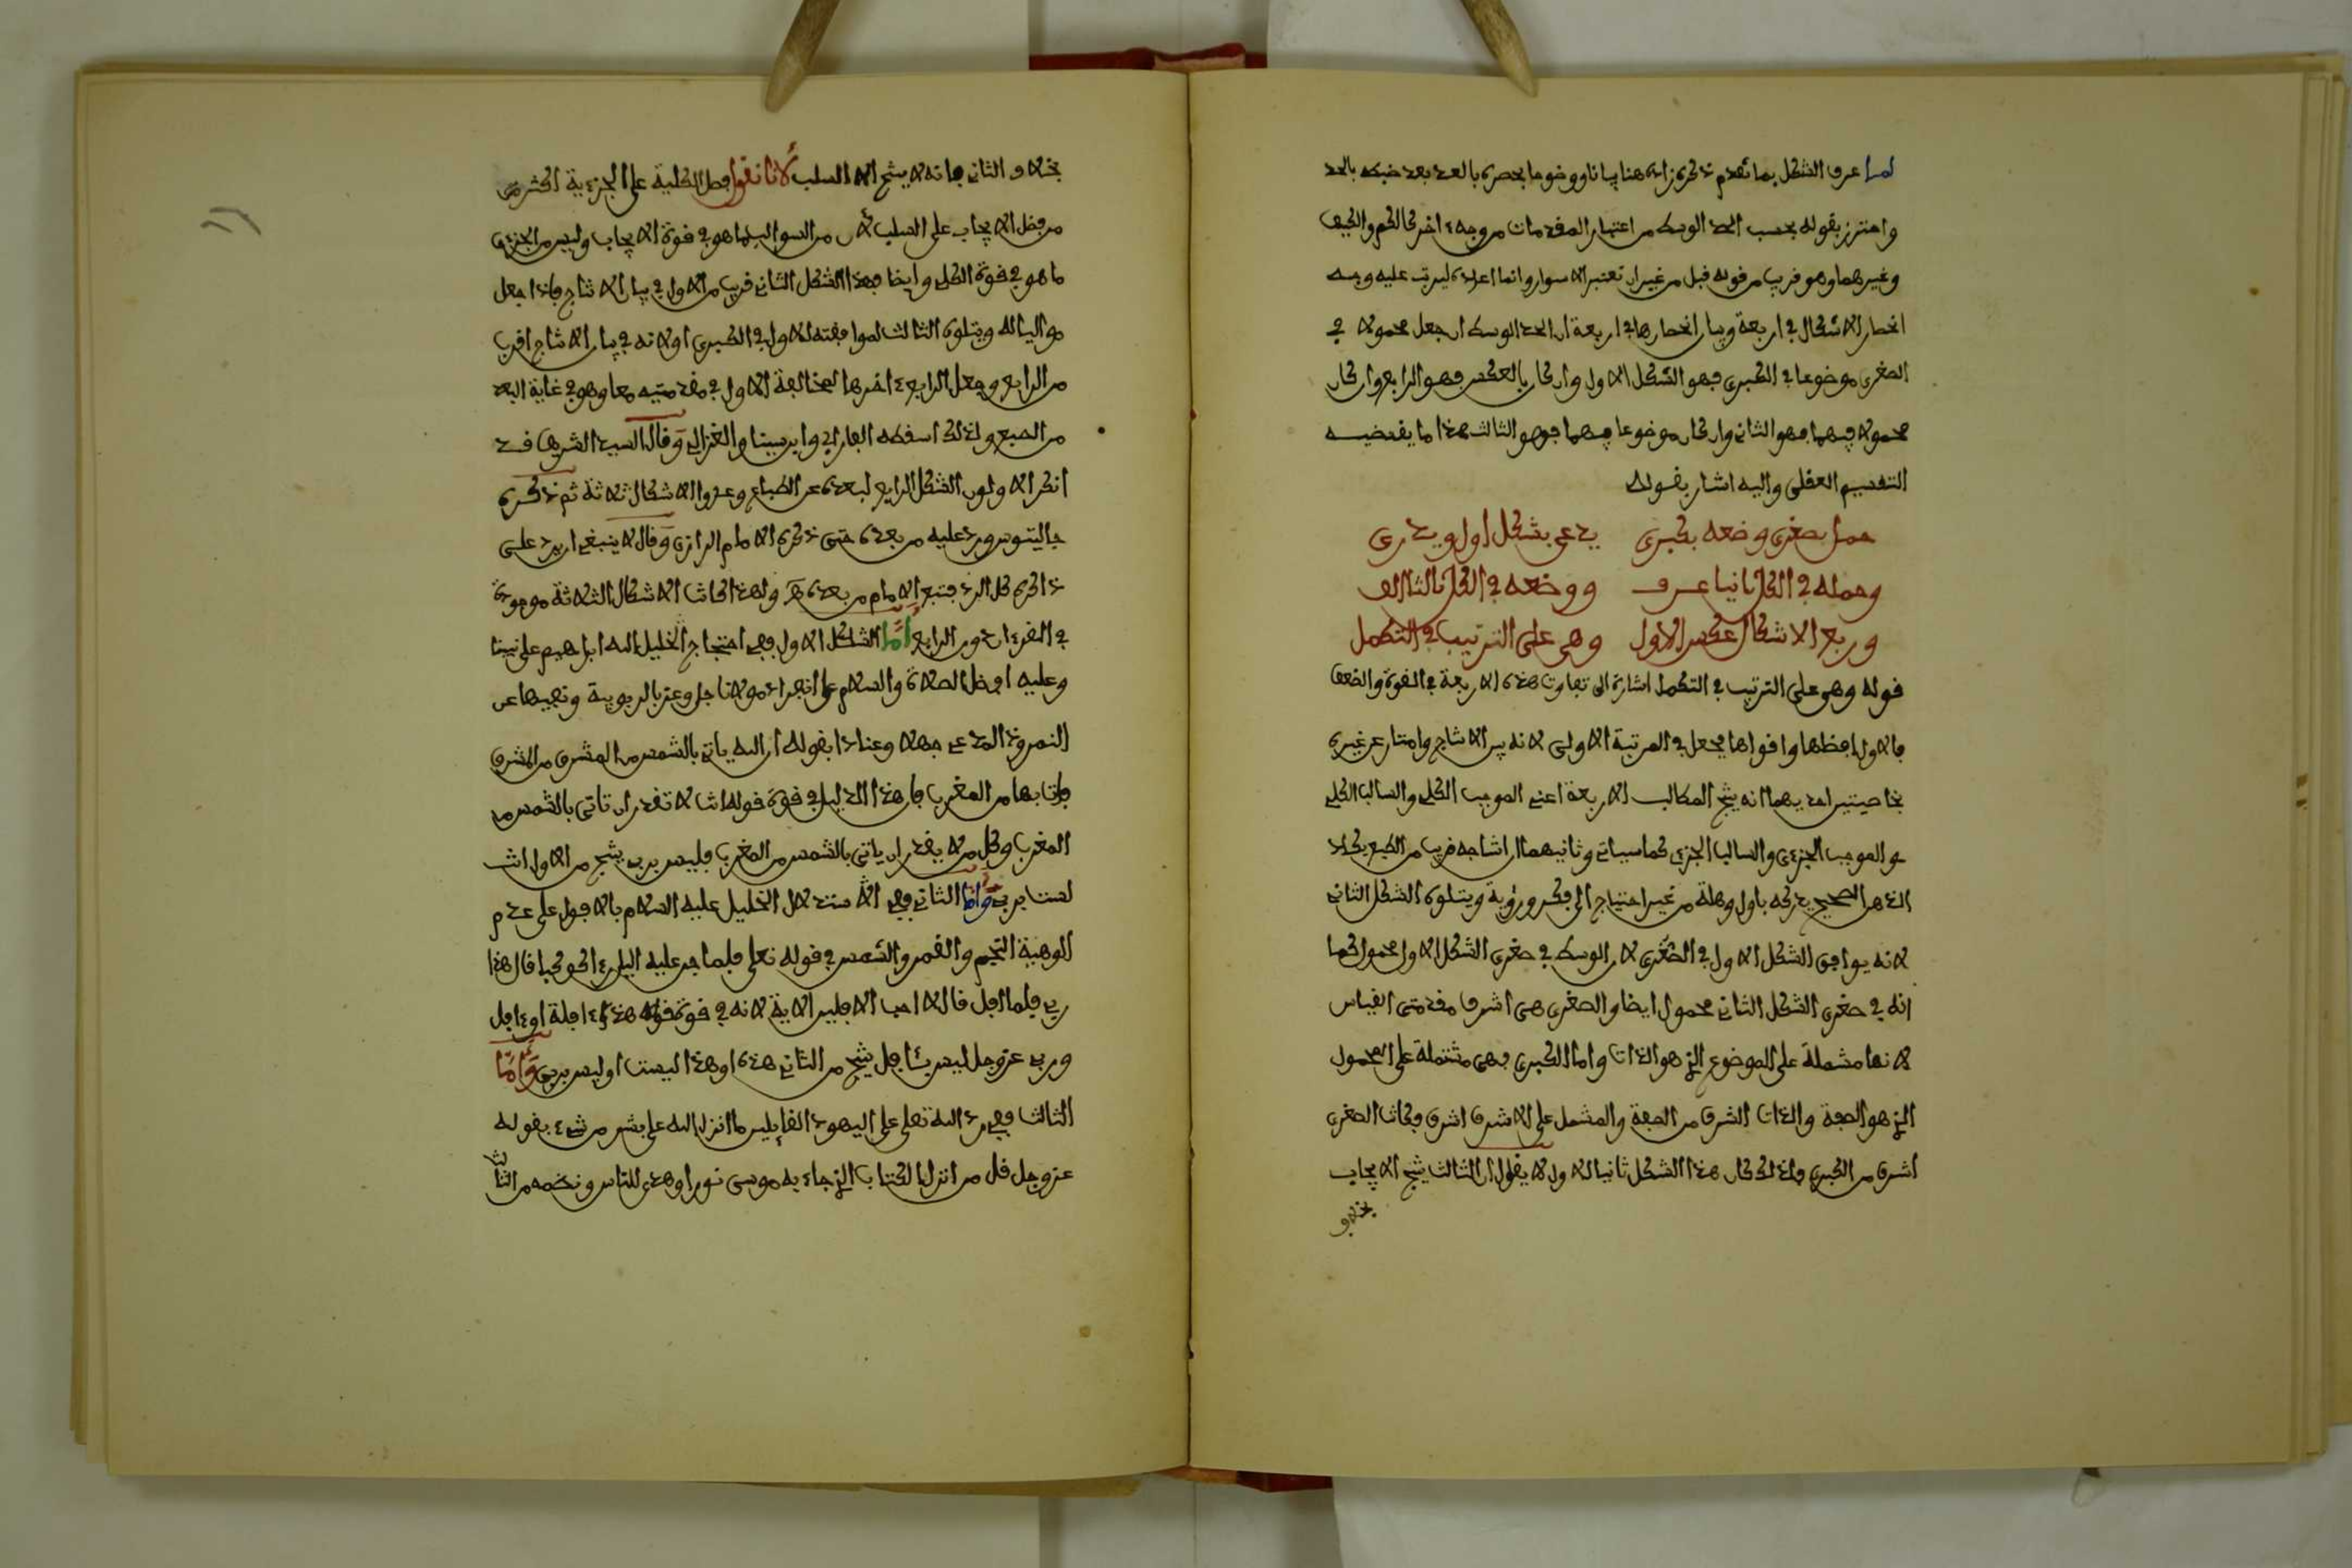 لما عرف الشكل بما تقدم ذكره زاده هنا بيانا ووضوحا بحصره بالعد بعد ضبطه بالحد
واحترز بقوله بحسب الحد الوسط من اعتبار المقدمات من وجهء اخر كالكم والكيف
وغيرهما وهو قريب من قوله قبل من غير ان تعتبر الاسوار وانما اعاده ليرتب عليه وجه
انحصار الاشكال في اربعة وبيان انحصارها في اربعة ان الحد الوسط ان جعل محمولا في
الصغرى موضوعا في الكبرى فهو الشكل الاول وان كان بالعكس فهو الرابع وان كان
محمولا فيهما فهو الثاني وان كان موضوعا فيهما فهو الثالث هذا ما يقتضيه
التقسيم العقلي واليه اشار بقوله
حمل بصغرى وضعه بكبرى يدعى بشكل اول ويدرى
وحمله في الكل ثانيا عرف ووضعه في الكل ثالثا الف
ورابع الاشكال عكس الاول وهي على الترتيب في التكمل
قوله وهي على الترتيب في التكمل اشارة الى تفاوت هذه الاربعة في القوة والضعف
فالاول افضلها واقواها فجعل في المرتبة الاولى لانه بين الانتاج وامتاز عن غيره
بخاصيتين احديهما انه ينتج المطالب الاربعة اعني الموجب الكلي والسالب الكلي
والموجب الجزءي والسالب الجزءي كما سياتي وثانيهما ان انتاجه قريب من الطبع بكاد
الذهن الصحيح يدركه باول وهلة من غير احتياج الى فكر وروية ويتلوه الشكل الثاني
لانه يوافق الشكل الاول في الصغرى لان الوسط في صغرى الشكل الاول محمول كما
انه في صغرى الشكل الثاني محمول ايضا والصغرى هي اشرف مقدمتي القياس
لانها مشتملة على الموضوع الذي هو الذات واما الكبرى فهي مشتملة على المحمول
الذي هو الصفة والذات اشرف من الصفة والمشتمل على الاشرف اشرف فكانت الصغرى
اشرف من الكبرى ولذلك كان هذا الشكل ثانيا للاول لا يقال ان الثالث ينتج الايجاب
بخلاف
بخلاف الثاني فانه لا ينتج الا السلب لانا نقول فضل الكلية على الجزءية اكثر من
من فضل الايجاب على السلب لان من السوالب ما هو في قوة الايجاب وليس من الجزءي
ما هو في قوة الكلي وايضا فهذا الشكل الثاني قريب من الاول في بيان الانتاج فلذا جعل
مواليا له ويتلوه الثالث لموافقته للاول في الكبرى او لانه في بيان الانتاج اقرب
من الرابع وجعل الرابع ءاخرها لمخالفة الاول في مقدمتيه معا وهو في غاية البعد
من الطبع ولذلك اسقطه الفارابي وابن سينا والغزالي وقال السيد الشريف قد
انكر الاولون الشكل الرابع لبعده عن الطباع وعدوا الاشكال ثلاثة ثم ذكره
جالينوس ورد عليه من بعده حتى ذكره الامام الرازي وقال لا ينبغي ان يرد على
ذاكره كل الرد فتبع الامام من بعده هـ ولهذا كانت الاشكال الثلاثة موجودة
في القرءان دون الرابع أمَّا الشكل الاول ففي احتجاج خليل الله ابراهيم على نبينا
وعليه افضل الصلاة والسلام على انفراد مولانا جل وعز بالربوبية ونفيها عن
النمروذ المدعي جهلا وعنادا بقوله ان الله ياتي بالشمس من المشرق من المشرق
فات بها من المغرب فان هذا الدليل في قوة قوله انت لا تقدر ان تاتي بالشمس من
المغرب وكل من لا يقدر ان ياتي بالشمس من المغرب فليس برب ينتج من الاول انت
لست برب وَأمَّا الثاني ففي استدلال الخليل عليه السلام بالافول على عدم
الوهية النجم والقمر والشمس في قوله تعلى فلما جن عليه اليل رءا كوكبا قال هذا
ربي فلما افل قال لا احب الافلين الاية لانه في قوة قوله هذه ءافلة او ءافل
وربي عز وجل ليس بئافل ينتج من الثاني هذه او هذا ليست او ليس بربي وَأمَّا
الثالث ففي رد الله تعلى على اليهود القايلين ما انزل الله على بشر من شيء بقوله
عز وجل قل من انزل الكتاب الذي جاء به موسى نورا وهدى للناس ونظمه من الثالث